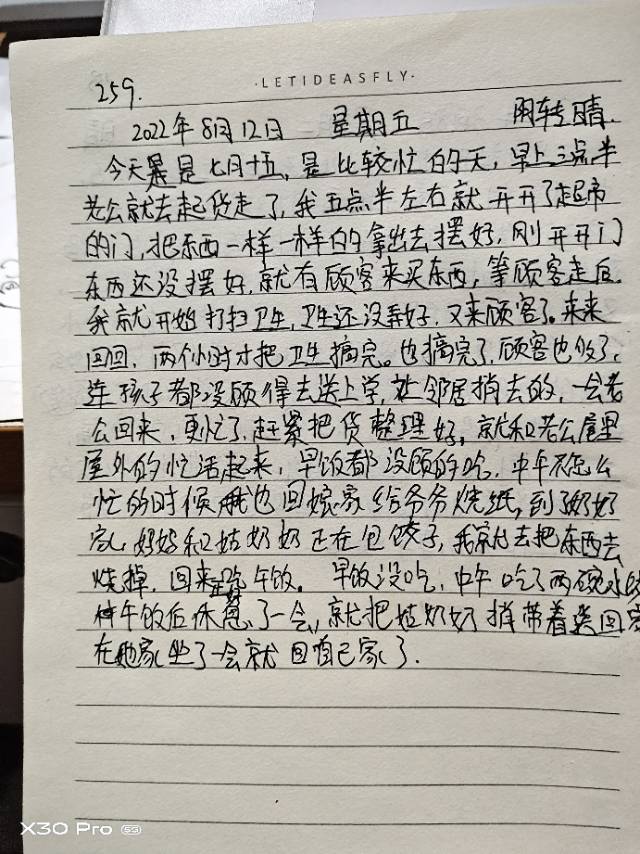 ·LETIDEASFLY·
259.
2022年8月12日 星期五 雨转晴.
今天是七月十五,是比较忙的一天,早上三点半
老公就去起货走了,我五点半左右就开开了超市
的门,把东西一样一样的拿出去摆好,刚开开门
东西还没摆好,就有顾客来买东西,等顾客走后.
我就开始打扫卫生,卫生还没弄好,又来顾客了.来来
回回,两个小时才把卫生搞完。也搞完了,顾客也多了,
连孩子都没顾得去送上学,让邻居捎去的,一会老
公回来,更忙了,赶紧把货整理好。就和老公屋里
屋外的忙活起来,早饭都没顾的吃,中午不怎么
忙的时候我也回娘家给爷爷烧纸,到了奶奶
家,奶奶和姑奶奶正在包饺子,我就去把东西去
烧掉,回来吃午饭。早饭没吃,中午吃了两碗水饺
午饭后休息了一会,就把姑奶奶捎带着送回家
在她家坐了一会就回自己家了.
X30 Pro 5G